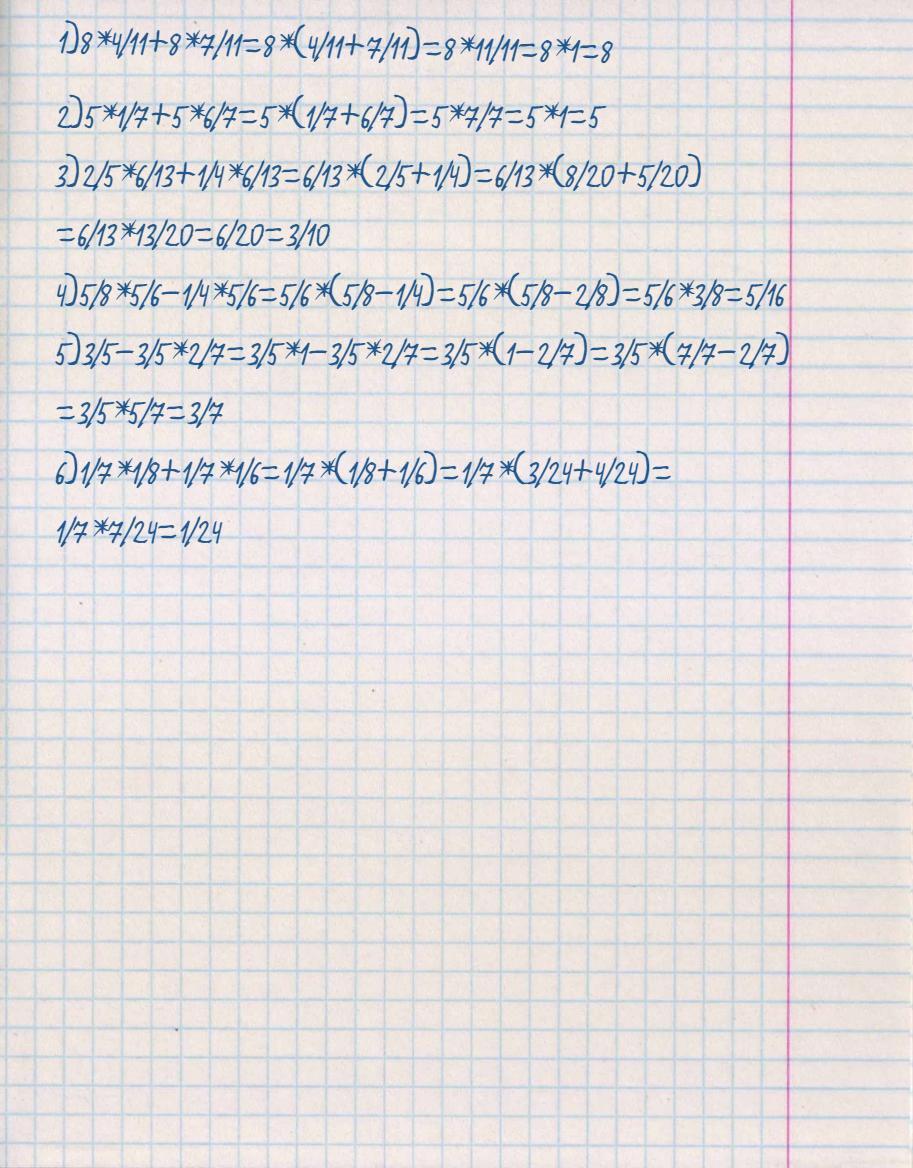 1)8*4/11+8*7/11=8*(4/11+7/11)=8*11/11=8*1=8
2)5*1/7+5*6/7=5*(1/7+6/7)=5*7/7=5*1=5
3)2/5*6/13+1/4*6/13=6/13*(2/5+1/4)=6/13*(8/20+5/20)
=6/13*13/20=6/20=3/10
4)5/8*5/6-1/4*5/6=5/6*(5/8-1/4)=5/6*(5/8-2/8)=5/6*3/8=5/16
5)3/5-3/5*2/7=3/5*1-3/5*2/7=3/5*(1-2/7)=3/5*(7/7-2/7)
=3/5*5/7=3/7
6)1/7*1/8+1/7*1/6=1/7*(1/8+1/6)=1/7*(3/24+4/24)=
1/7*7/24=1/24